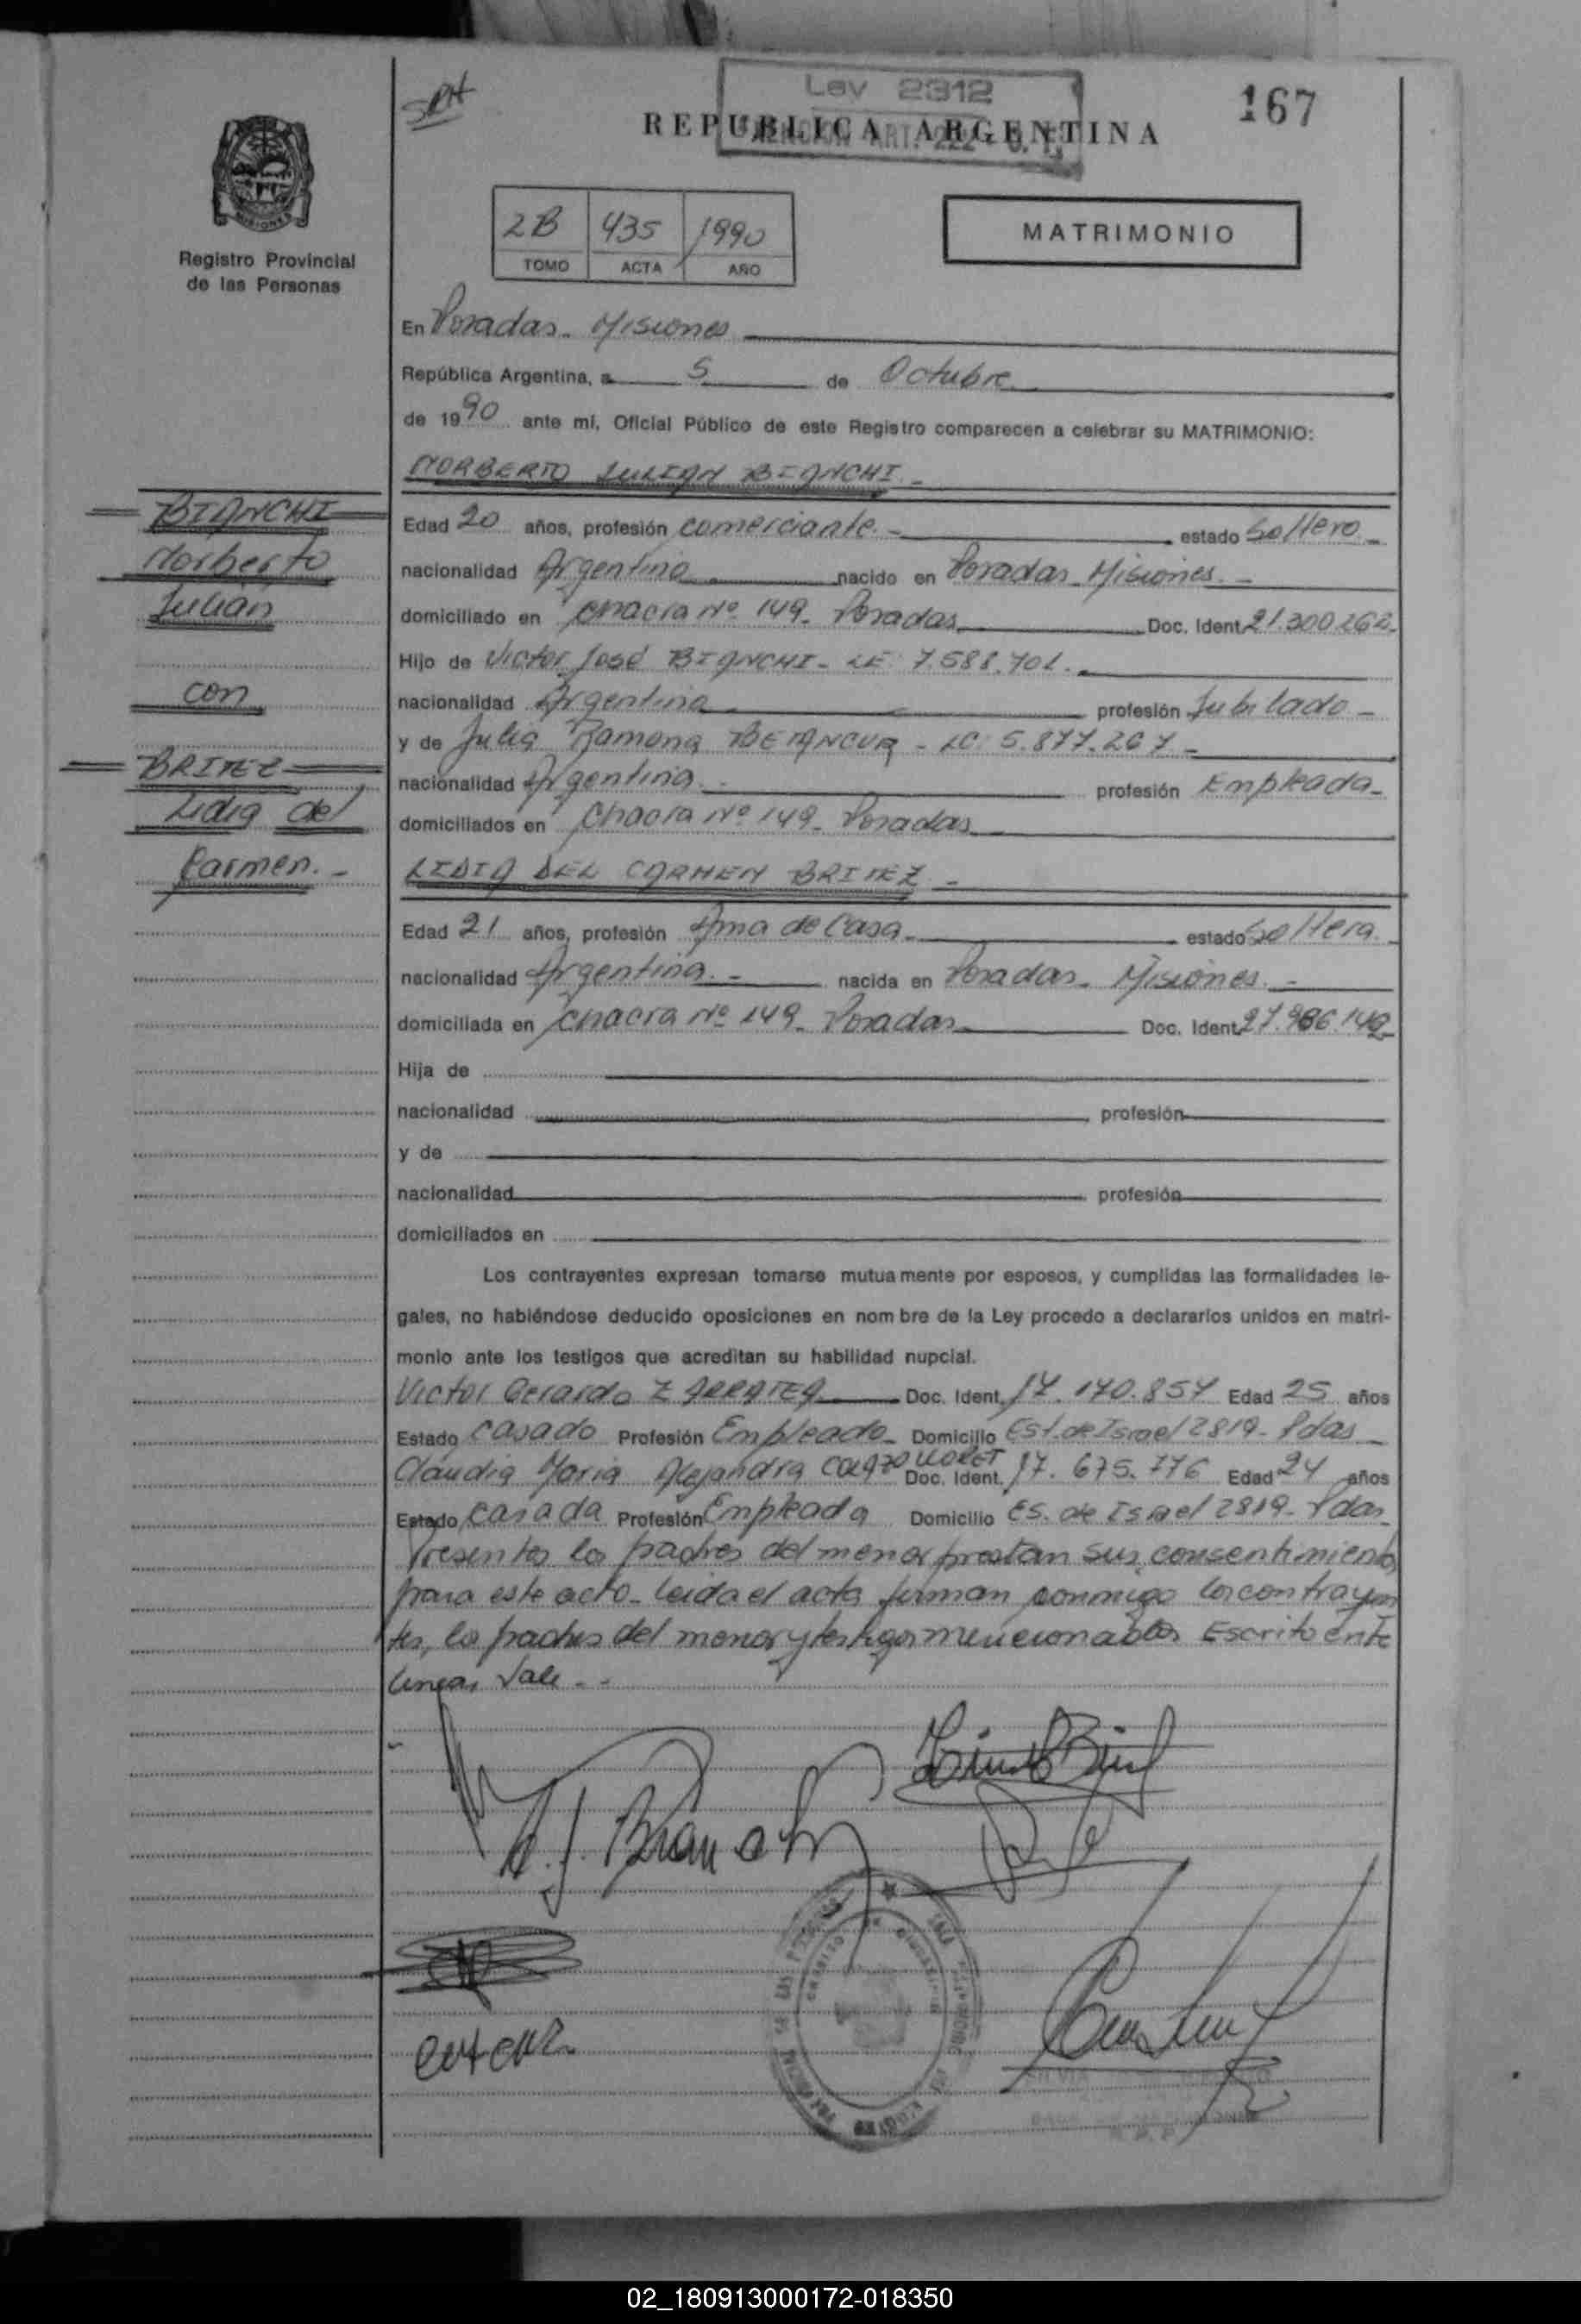 SRH
Ley 2312
167
REPUBLICA ARGENTINA
MISIONES
Registro Provincial
de las Personas
2B 435 1990
TOMO ACTA AÑO
MATRIMONIO
En Posadas - Misiones
República Argentina, a 5 de Octubre
de 1990 ante mí, Oficial Público de este Registro comparecen a celebrar su MATRIMONIO:
NORBERTO JULIAN BIANCHI.-
BIANCHI
Norberto
Julián
con
BRITEZ
Lidia del
Carmen.-
Edad 20 años, profesión comerciante.- estado Soltero.-
nacionalidad Argentina nacido en Posadas - Misiones.-
domiciliado en Chacra Nº 149 - Posadas Doc. Ident. 21.300.262.
Hijo de Victor José BIANCHI - LE: 7.588.701.-
nacionalidad Argentina profesión Jubilado -
y de Julia Ramona BETANCUR - LC: 5.877.267 -
nacionalidad Argentina.- profesión Empleada -
domiciliados en Chacra Nº 149 - Posadas
LIDIA DEL CARMEN BRITEZ -
Edad 21 años, profesión Ama de Casa - estado Soltera.
nacionalidad Argentina.- nacida en Posadas - Misiones.-
domiciliada en Chacra Nº 149 - Posadas Doc. Ident. 27.986.142
Hija de
nacionalidad profesión
y de
nacionalidad profesión
domiciliados en
Los contrayentes expresan tomarse mutuamente por esposos, y cumplidas las formalidades le-
gales, no habiéndose deducido oposiciones en nombre de la Ley procedo a declararlos unidos en matri-
monio ante los testigos que acreditan su habilidad nupcial.
Victor Gerardo ZARRATEA Doc. Ident. 17.170.857 Edad 25 años
Estado Casado Profesión Empleado - Domicilio Est. de Israel 2819 - Pdas
Claudia Maria Alejandra COLAZO LLORET Doc. Ident. 17.675.776 Edad 24 años
Estado Casada Profesión Empleada Domicilio Es. de Israel 2819 - Pdas
Presentes los padres del menor prestan sus consentimiento
para este acto - leida el acta firman conmigo los contrayen
tes, los padres del menor y testigos mencionados Escrito entre
lineas Vale.-
N.J. Bianchi
SILVIA
02_180913000172-018350